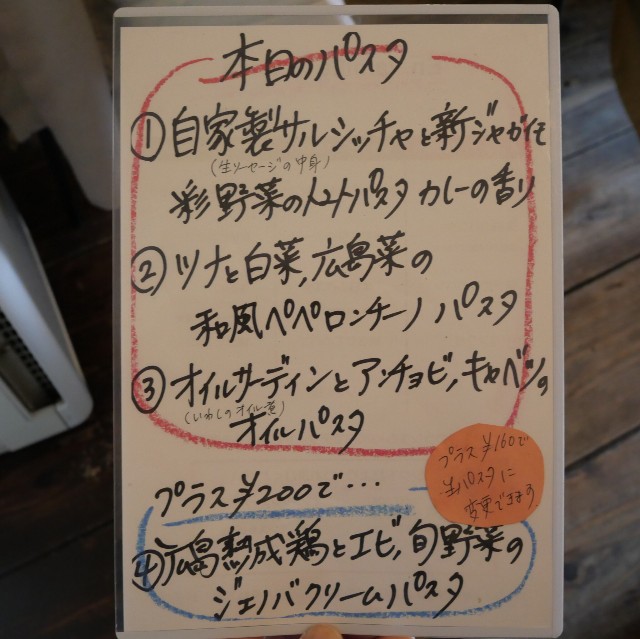 本日のパスタ
①自家製サルシッチャと新ジャガイモ
(生ソーセージの中身)
彩野菜のトマトパスタ カレーの香り
②ツナと白菜,広島菜の
和風ペペロンチーノ パスタ
③オイルサーディンとアンチョビ,キャベツの
(いわしのオイル煮)
オイルパスタ
プラス¥160で
生パスタに
変更できます
プラス¥200で…
④広島熟成鶏とエビ,旬野菜の
ジェノバクリームパスタ